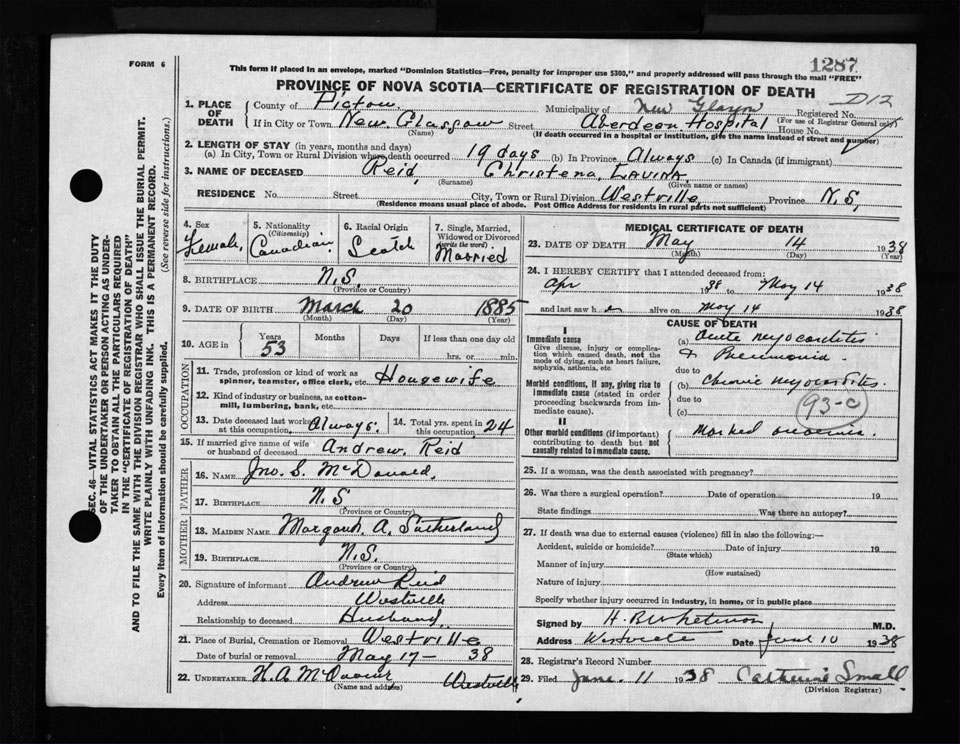 FORM 6
1287
This form if placed in an envelope, marked "Dominion Statistics—Free, penalty for improper use $300," and properly addressed will pass through the mail "FREE"
PROVINCE OF NOVA SCOTIA—CERTIFICATE OF REGISTRATION OF DEATH
D12
1. PLACE OF DEATH
County of Pictou. Municipality of New Glasgow Registered No.
(For use of Registrar General only)
If in City or Town New Glasgow Street Aberdeen Hospital House No.
(Name) (If death occurred in a hospital or institution, give the name instead of street and number)
2. LENGTH OF STAY (in years, months and days)
(a) In City, Town or Rural Division where death occurred 19 days (b) In Province Always (c) In Canada (if immigrant)
3. NAME OF DECEASED Reid, Christena, LAVINA
(Surname) (Given name or names)
RESIDENCE No. Street City, Town or Rural Division Westville Province N.S.
(Residence means usual place of abode. Post Office Address for residents in rural parts not sufficient)
4. Sex Female,
5. Nationality (Citizenship) Canadian
6. Racial Origin Scotch
7. Single, Married, Widowed or Divorced (write the word) Married
8. BIRTHPLACE N.S.
(Province or Country)
9. DATE OF BIRTH March 20 1885
(Month) (Day) (Year)
10. AGE in Years 53 Months Days If less than one day old
hrs. or min.
OCCUPATION
11. Trade, profession or kind of work as spinner, teamster, office clerk, etc. Housewife
12. Kind of industry or business, as cotton-mill, lumbering, bank, etc.
13. Date deceased last worked at this occupation Always.
14. Total yrs. spent in this occupation 24
15. If married give name of wife or husband of deceased Andrew Reid
FATHER
16. NAME Jno. S. McDonald,
17. BIRTHPLACE N.S.
(Province or Country)
MOTHER
18. MAIDEN NAME Margaret A. Sutherland
19. BIRTHPLACE N.S.
(Province or Country)
20. Signature of informant Andrew Reid
Address Westville
Relationship to deceased Husband
21. Place of Burial, Cremation or Removal Westville
Date of burial or removal May 17- 38
22. UNDERTAKER H.A. Westville
(Name and address)
MEDICAL CERTIFICATE OF DEATH
23. DATE OF DEATH May 14 1938
(Month) (Day) (Year)
24. I HEREBY CERTIFY that I attended deceased from:
Apr 1938 to May 14 1938
and last saw h alive on May 14 1938
CAUSE OF DEATH
I
Immediate cause
Give disease, injury or complication which caused death, not the mode of dying, such as heart failure, asphyxia, asthenia, etc.
(a) Acute myocarditis
& Pneumonia
due to
Morbid conditions, if any, giving rise to immediate cause (stated in order proceeding backwards from immediate cause).
(b) Chronic myocarditis.
due to
(c)
93-c
II
Other morbid conditions (if important) contributing to death but not causally related to immediate cause.
Marked anaemia.
25. If a woman, was the death associated with pregnancy?
26. Was there a surgical operation? Date of operation 19
State findings Was there an autopsy?
27. If death was due to external causes (violence) fill in also the following:—
Accident, suicide or homicide? Date of injury 19
(State which)
Manner of injury
(How sustained)
Nature of injury
Specify whether injury occurred in industry, in home, or in public place
Signed by M.D.
Address Westville Date June 10 1938
28. Registrar's Record Number
29. Filed June 11 1938 Catherine Small
(Division Registrar)
SEC. 46—VITAL STATISTICS ACT MAKES IT THE DUTY
OF THE UNDERTAKER OR PERSON ACTING AS UNDER-
TAKER TO OBTAIN ALL THE PARTICULARS REQUIRED
IN THE "CERTIFICATE OF REGISTRATION OF DEATH"
AND TO FILE THE SAME WITH THE DIVISION REGISTRAR WHO SHALL ISSUE THE BURIAL PERMIT.
WRITE PLAINLY WITH UNFADING INK. THIS IS A PERMANENT RECORD.
Every item of information should be carefully supplied. (See reverse side for instructions.)